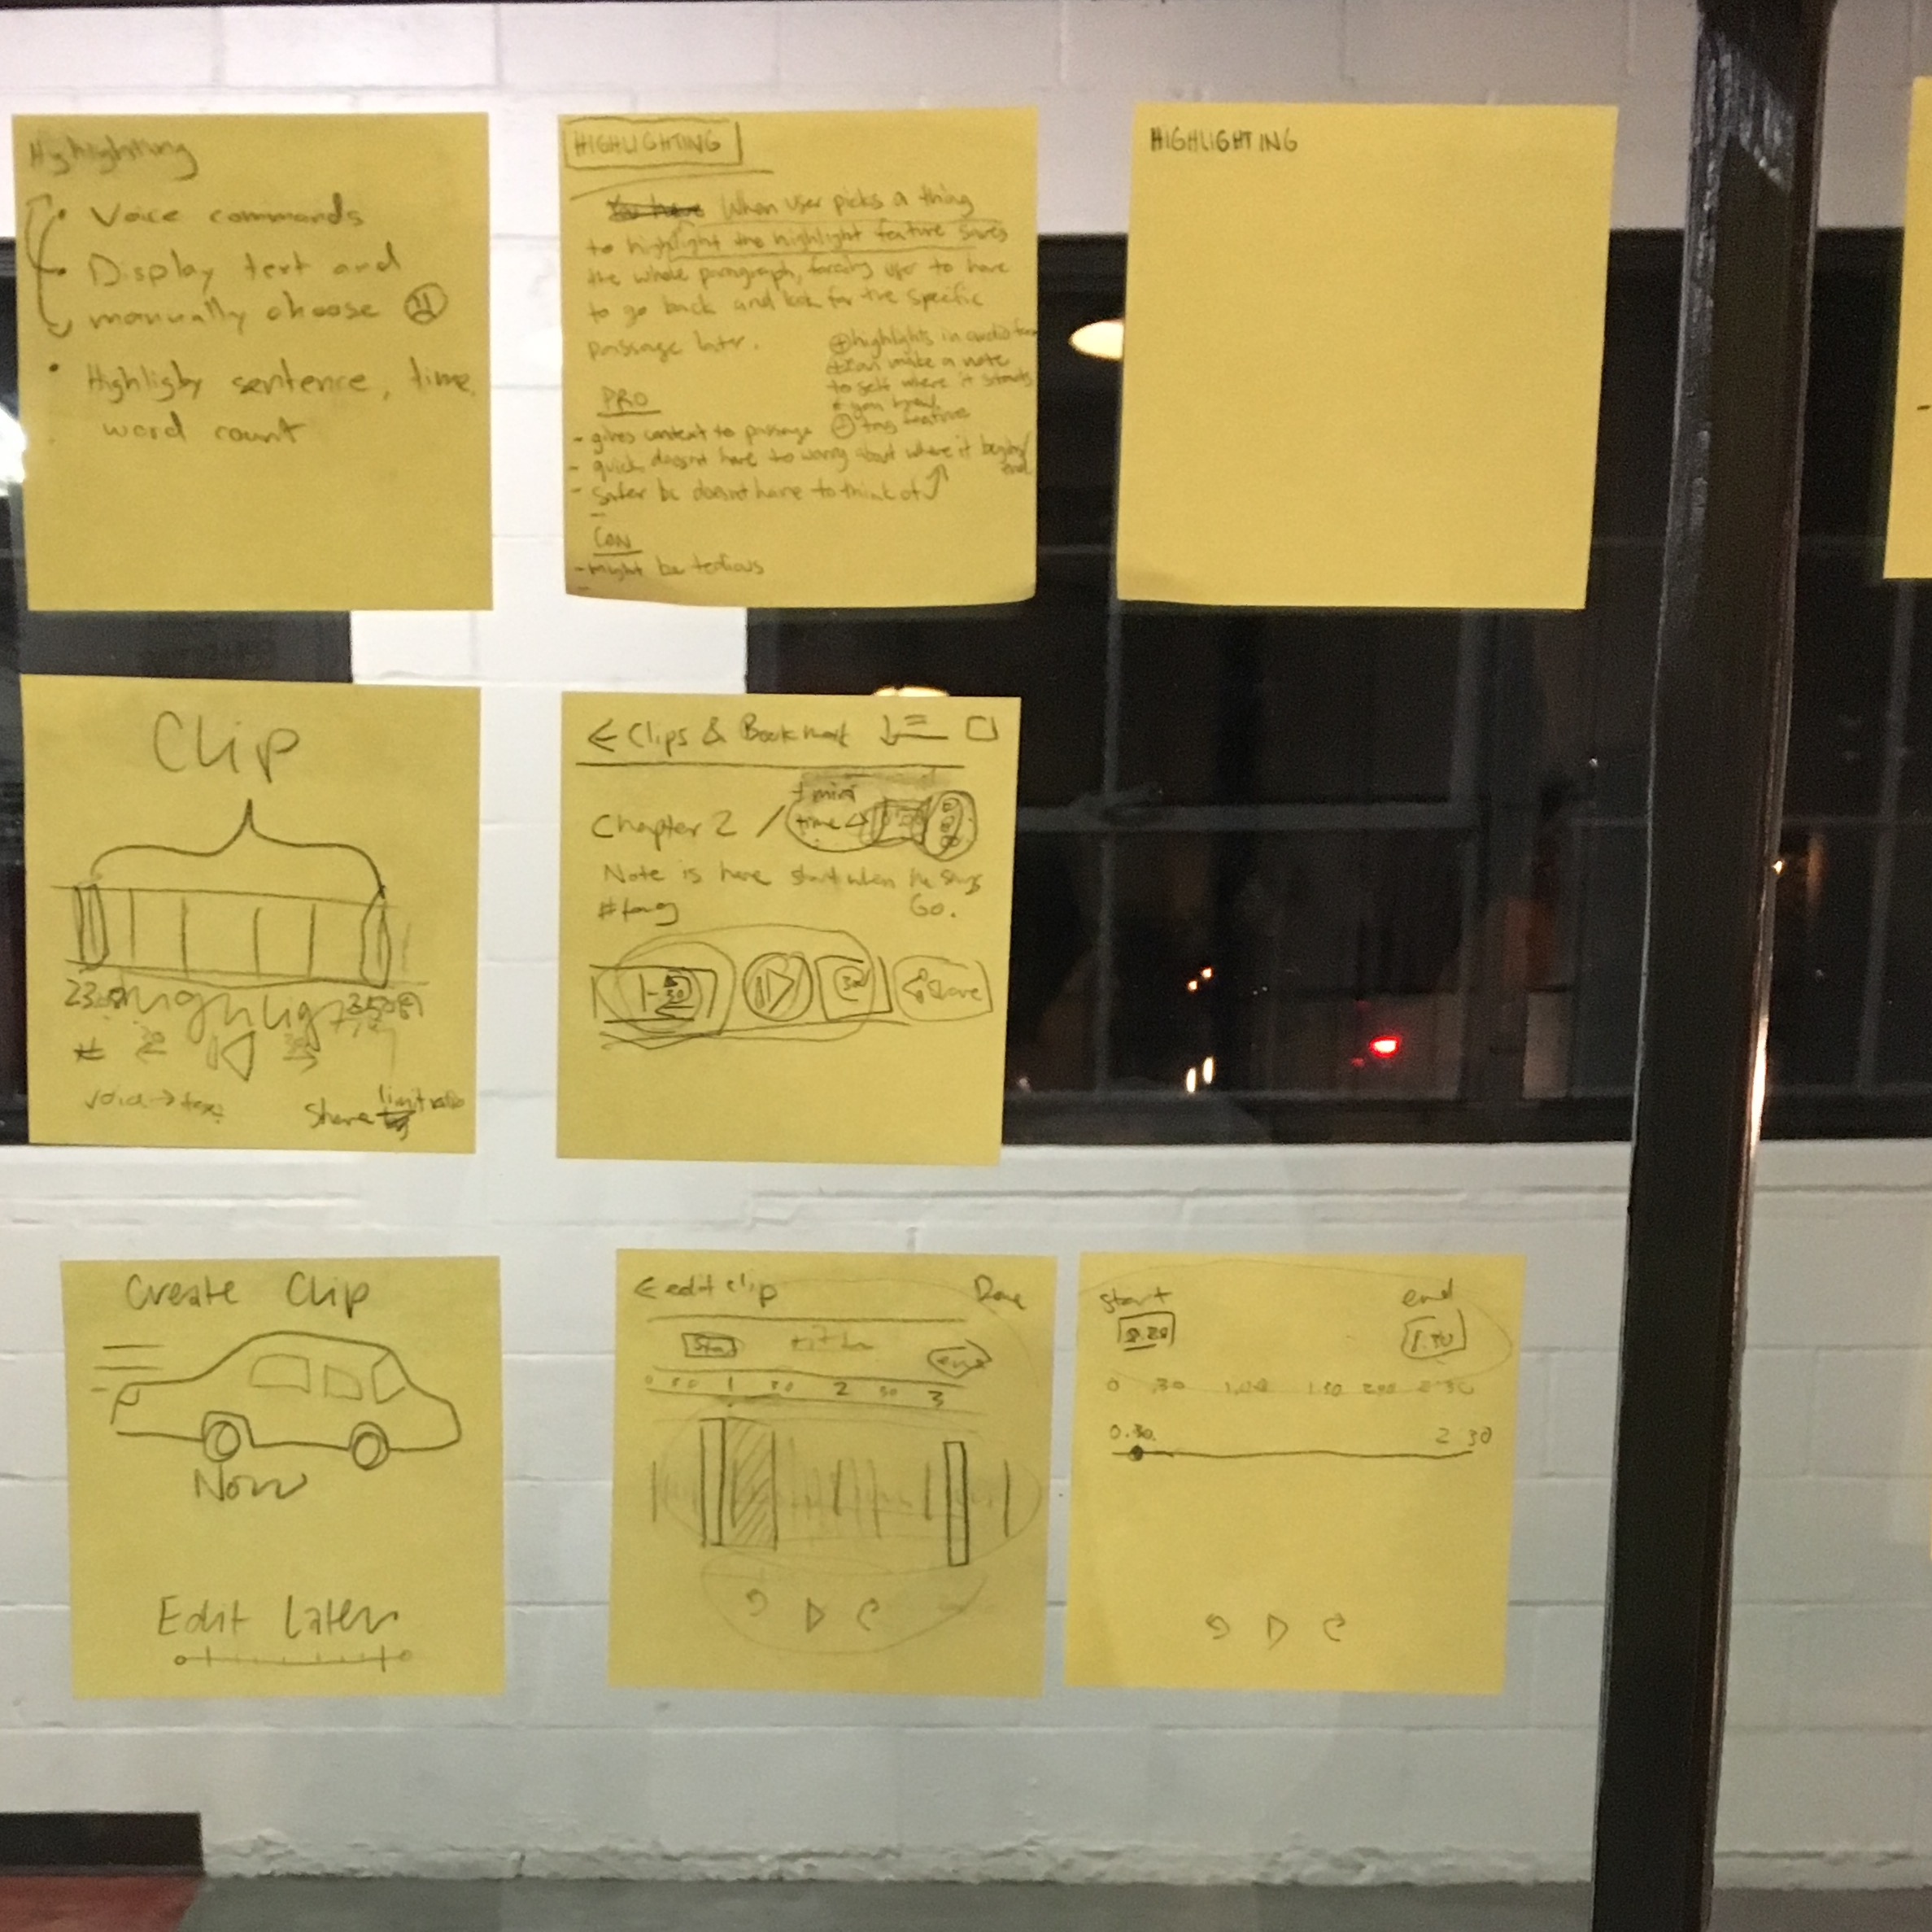 Highlighting
Voice commands
Display text and
manually choose
Highlight by sentence, time,
word count
HIGHLIGHTING
When user picks a thing
to highlight the highlight feature saves
the whole paragraph, forcing user to have
to go back and look for the specific
passage later.
+ highlights in audio
+ can make a note
to self where it starts
+ tag feature
PRO
- gives context to passage
- quick doesnt have to worry about where it begins/
end
- safer bc doesnt have to think of
CON
- might be tedious
HIGHLIGHTING
Clip
Highlight
voice → text
Share limit
← Clips & Bookmark
Chapter 2 /
time
Note is here start when he says
Go.
#tag
30
30
share
Create Clip
Now
Edit Later
← edit clip Done
Start
end
0 30 1 30 2 30 3
start end
0.30 1.30
0 .30 1.00 1.30 2.00 2.30
0.30 2.30